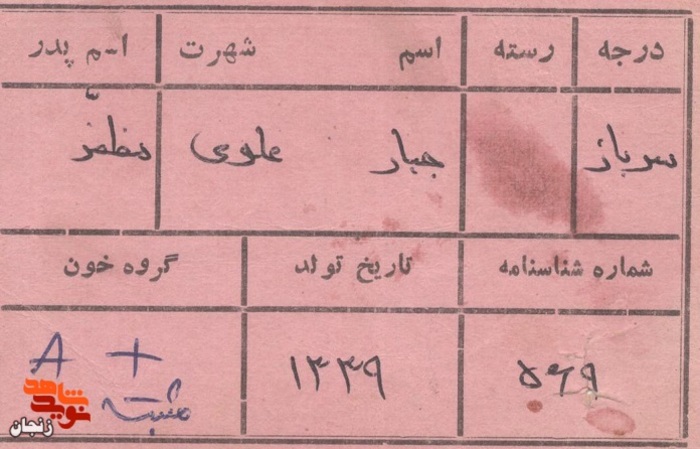 درجه رسته اسم شهرت اسم پدر
سرباز جبار علوی مظفر
شماره شناسنامه تاریخ تولد گروه خون
۵۶۹ ۱۳۳۹ A +
مثبت
نوید شاهد
زنجان